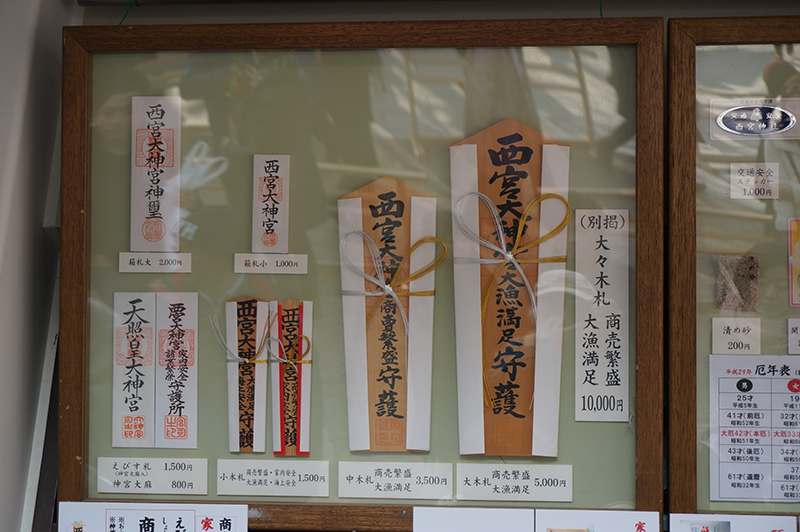 西宮大神宮神璽
箱札大 2,000円
西宮大神宮
箱札小 1,000円
天照皇大神宮
家内安全
守護所
えびす札 1,500円
(神宮大麻入)
神宮大麻 800円
西宮大神宮
守護
西宮大神宮
守護
小木札
商売繁盛・家内安全
大漁満足・海上安全
1,500円
西宮大神宮商賣繁盛守護
中木札
商売繁盛
大漁満足
3,500円
西宮大神宮大漁満足守護
大木札
商売繁盛
大漁満足
5,000円
(別掲)
大々木札
商売繁盛
大漁満足
10,000円
交通安全
西宮神社
交通安全
ステッカー
1,000円
清め砂
200円
平成29年 厄年表
男
25才
平成5年生
41才(前厄)
昭和52年生
大厄42才(本厄)
昭和51年生
43才(後厄)
昭和50年生
61才(還暦)
昭和32年生